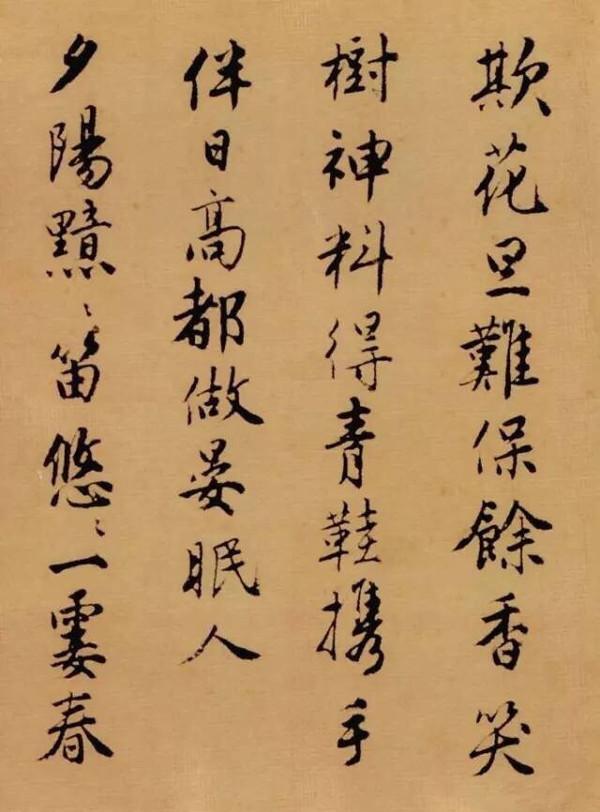 欺花旦難保餘香笑
樹神料得青鞋攜手
伴日高都做晏眠人
夕陽黯〻笛悠〻一霎春